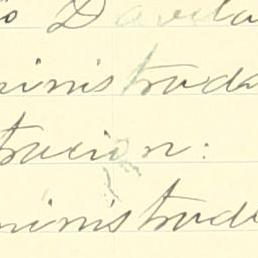 io Davila
ministrada
tracion:
ministrad